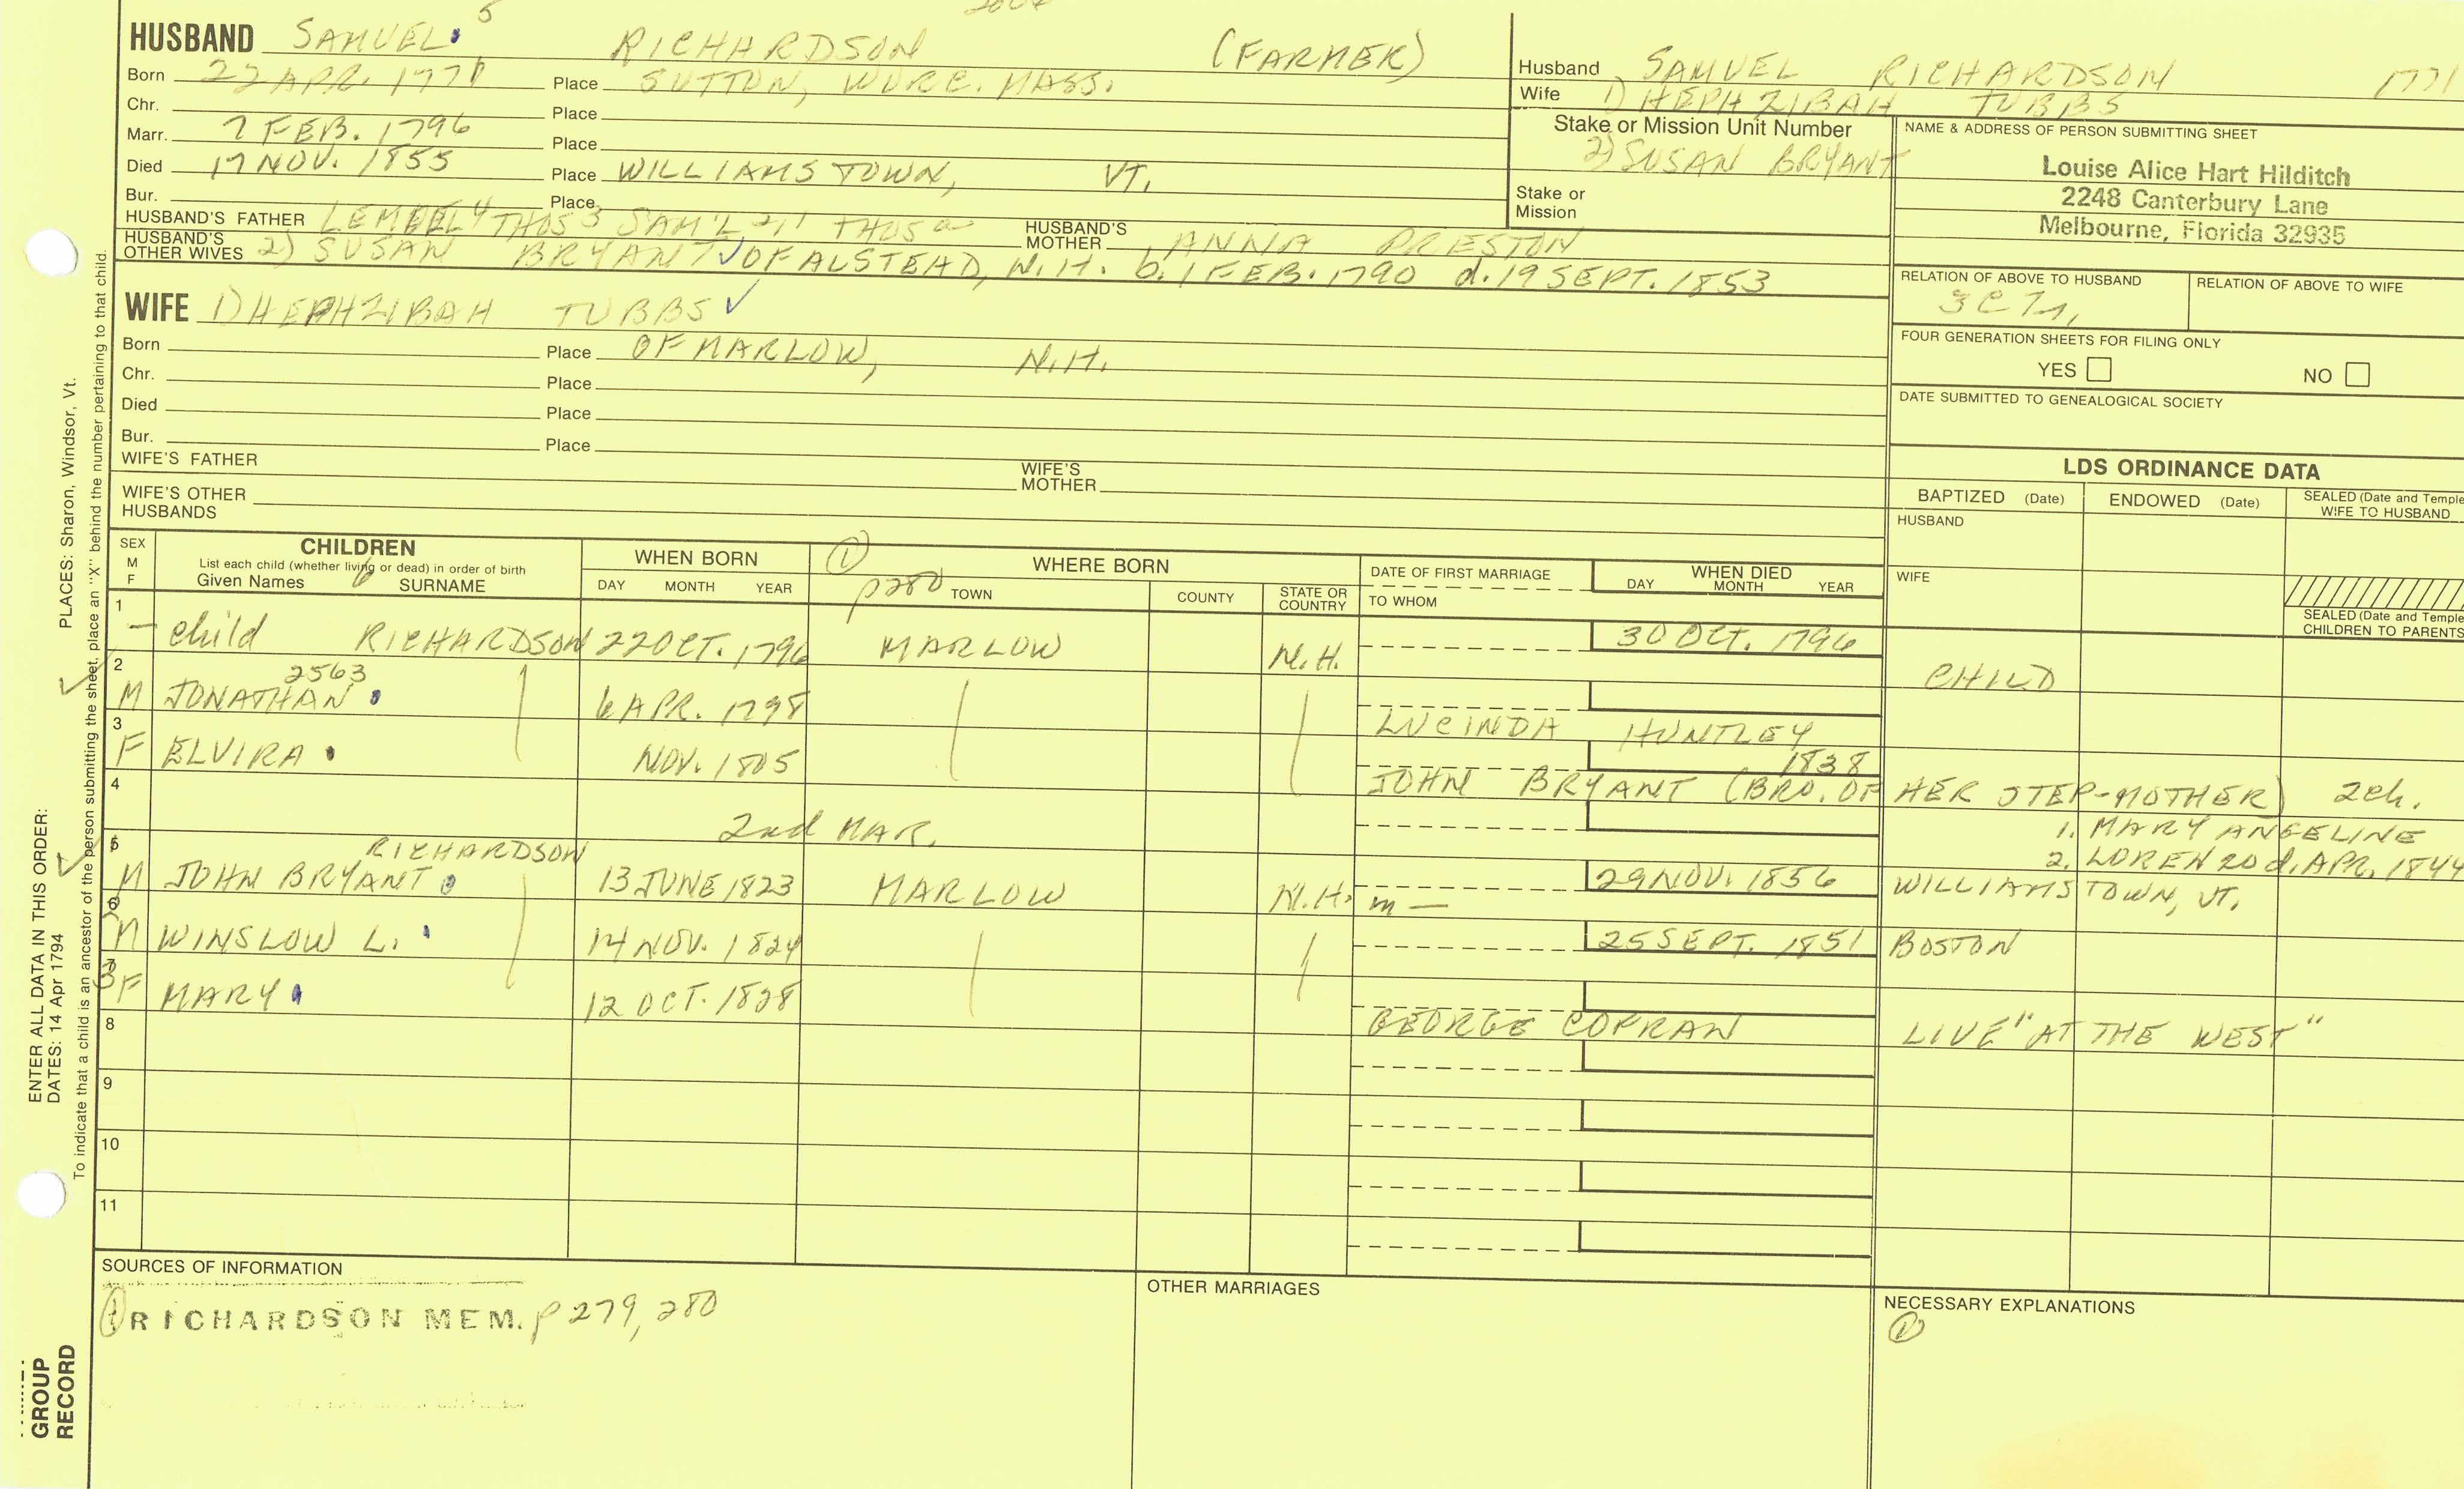 5
HUSBAND SAMUEL RICHARDSON (FARMER)
Born 22 APR. 1771 Place SUTTON, WORC. MASS.
Chr. Place
Marr. 7 FEB. 1796 Place
Died 17 NOV. 1855 Place WILLIAMSTOWN, VT.
Bur. Place
HUSBAND'S FATHER LEMUEL 4 THOS 3 SAM'L 2, 1 THOS HUSBAND'S MOTHER ANNA PRESTON
HUSBAND'S OTHER WIVES 2) SUSAN BRYANT OF ALSTEAD, N.H. b. 1 FEB. 1790 d. 19 SEPT. 1853
WIFE 1) HEPHZIBAH TUBBS
Born Place OF MARLOW, N.H.
Chr. Place
Died Place
Bur. Place
WIFE'S FATHER WIFE'S MOTHER
WIFE'S OTHER HUSBANDS
Husband SAMUEL RICHARDSON 1771
Wife 1) HEPHZIBAH TUBBS
Stake or Mission Unit Number
2) SUSAN BRYANT
Stake or Mission
NAME & ADDRESS OF PERSON SUBMITTING SHEET
Louise Alice Hart Hilditch
2248 Canterbury Lane
Melbourne, Florida 32935
RELATION OF ABOVE TO HUSBAND RELATION OF ABOVE TO WIFE
FOUR GENERATION SHEETS FOR FILING ONLY
YES NO
DATE SUBMITTED TO GENEALOGICAL SOCIETY
LDS ORDINANCE DATA
BAPTIZED (Date) ENDOWED (Date) SEALED (Date and Temple WIFE TO HUSBAND
HUSBAND
WIFE
SEALED (Date and Temple CHILDREN TO PARENTS
SEX M F CHILDREN WHEN BORN ① WHERE BORN DATE OF FIRST MARRIAGE WHEN DIED
List each child (whether living or dead) in order of birth
Given Names 6 SURNAME DAY MONTH YEAR p280 TOWN COUNTY STATE OR COUNTRY TO WHOM DAY MONTH YEAR
1 – child RICHARDSON 22 OCT. 1796 MARLOW N.H. 30 OCT. 1796 CHILD
2563
2 M JONATHAN 6 APR. 1798 LUCINDA HUNTLEY
3 F ELVIRA NOV. 1805 1838 JOHN BRYANT (BRO. OF HER STEP-MOTHER) 2ch.
4 2nd MAR. 1. MARY ANGELINE
2. LOREN 20 d. APR. 1844
5 M JOHN BRYANT RICHARDSON 13 JUNE 1823 MARLOW N.H. m — 29 NOV. 1856 WILLIAMSTOWN, VT.
6 M WINSLOW L. 14 NOV. 1824 25 SEPT. 1851 BOSTON
7 F MARY 12 OCT. 1828 GEORGE COPRAN LIVE "AT THE WEST"
8
9
10
11
SOURCES OF INFORMATION
① RICHARDSON MEM. p 279, 280
OTHER MARRIAGES
NECESSARY EXPLANATIONS
①
ENTER ALL DATA IN THIS ORDER:
DATES: 14 Apr 1794 PLACES: Sharon, Windsor, Vt.
To indicate that a child is an ancestor of the person submitting the sheet, place an "X" behind the number pertaining to that child.
GROUP
RECORD